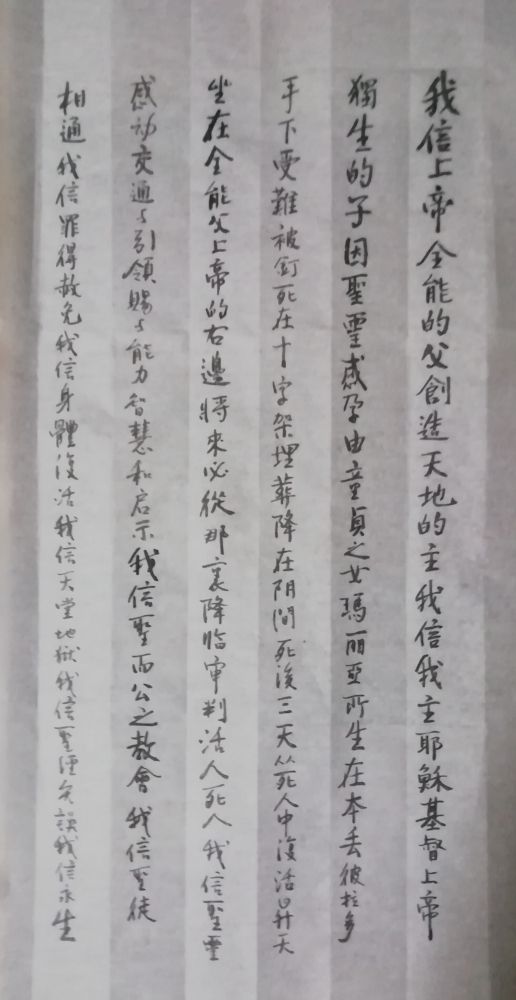 我信上帝全能的父創造天地的主我信我主耶穌基督上帝
獨生的子因聖靈感孕由童貞之女瑪丽亞所生在本丢彼拉多
手下受難被釘死在十字架埋葬降在阴间死後三天从死人中復活昇天
坐在全能父上帝的右邊將來必從那裏降临审判活人死人我信聖靈
感动交通与引領賜与能力智慧和启示我信聖而公之教會我信聖徒
相通我信罪得赦免我信身體復活我信天堂地獄我信聖經无誤我信永生